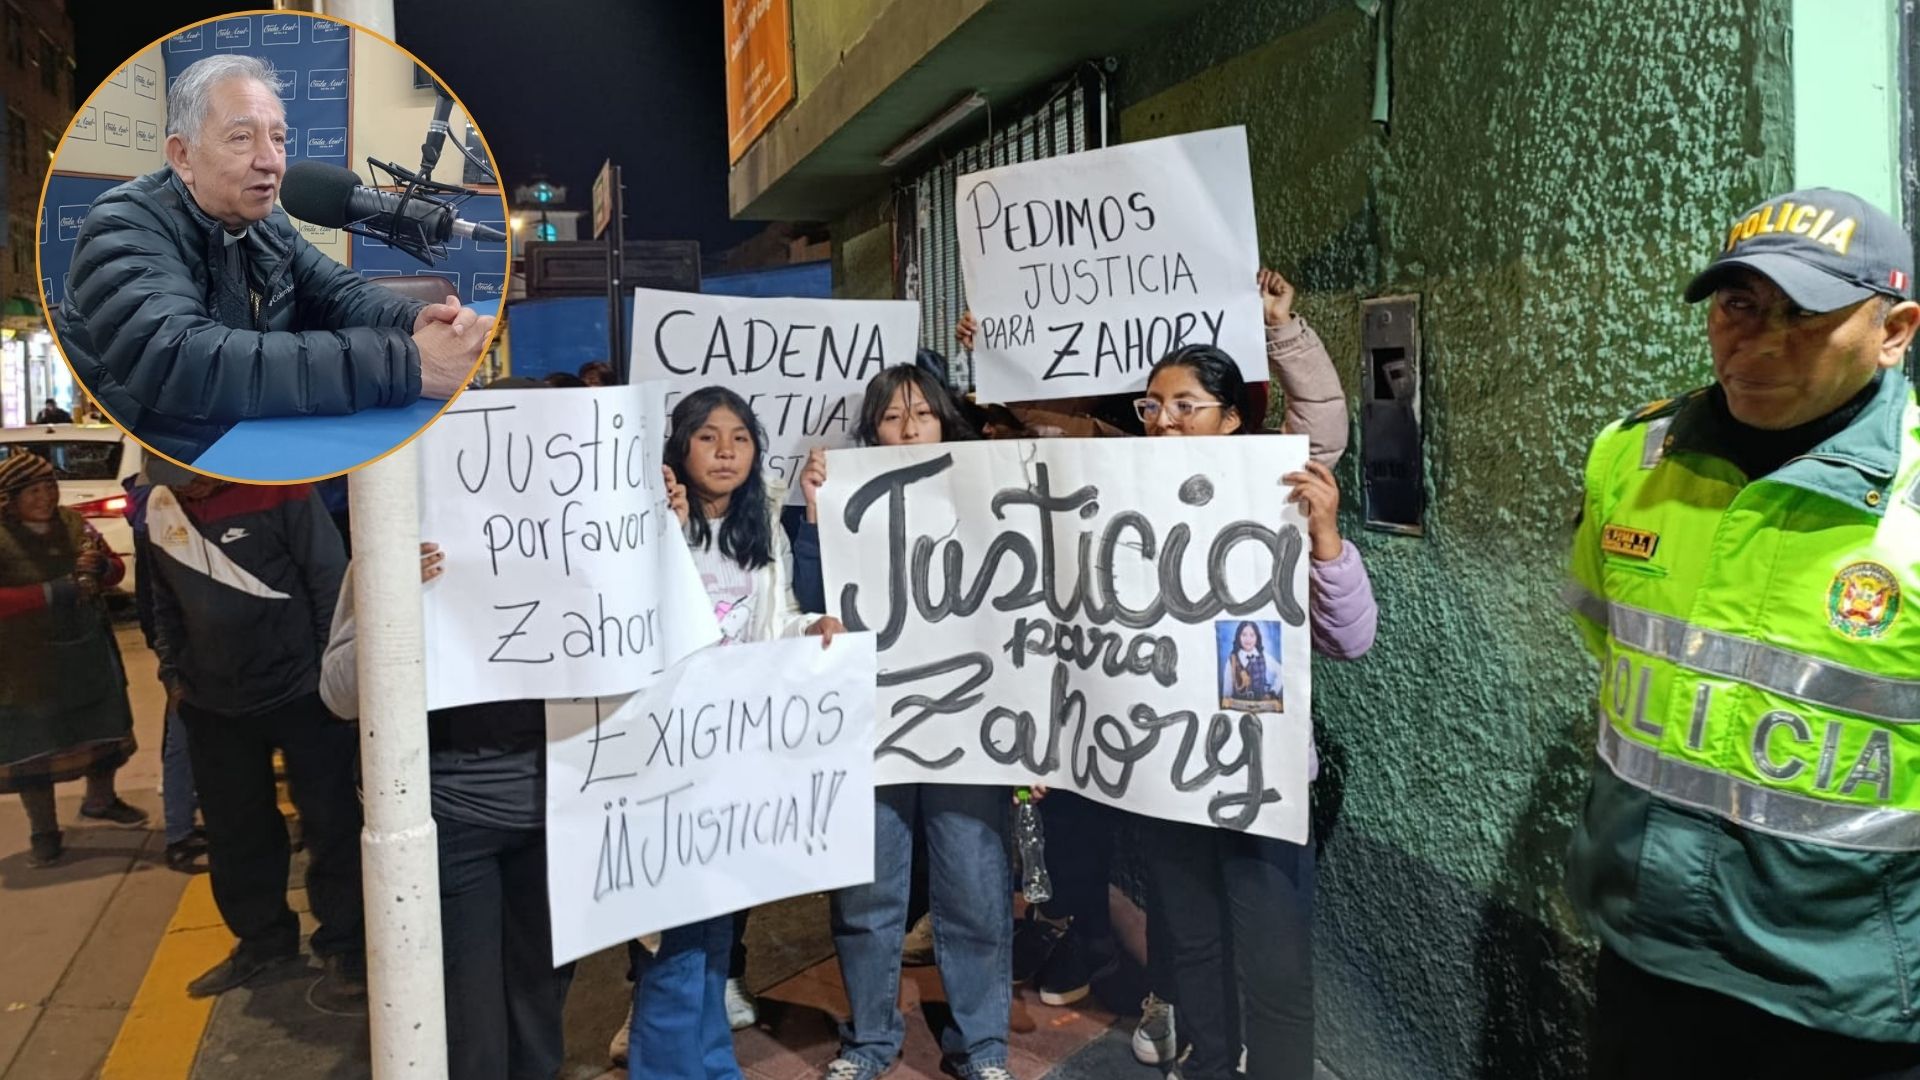 Onda Azul
PEDIMOS
JUSTICIA
PARA ZAHORY
CADENA
JUSTICIA
por favor
Zahor
Justicia
para
Zahory
EXIGIMOS
¡¡JUSTICIA!!
POLICIA
POLICIA
Columbia